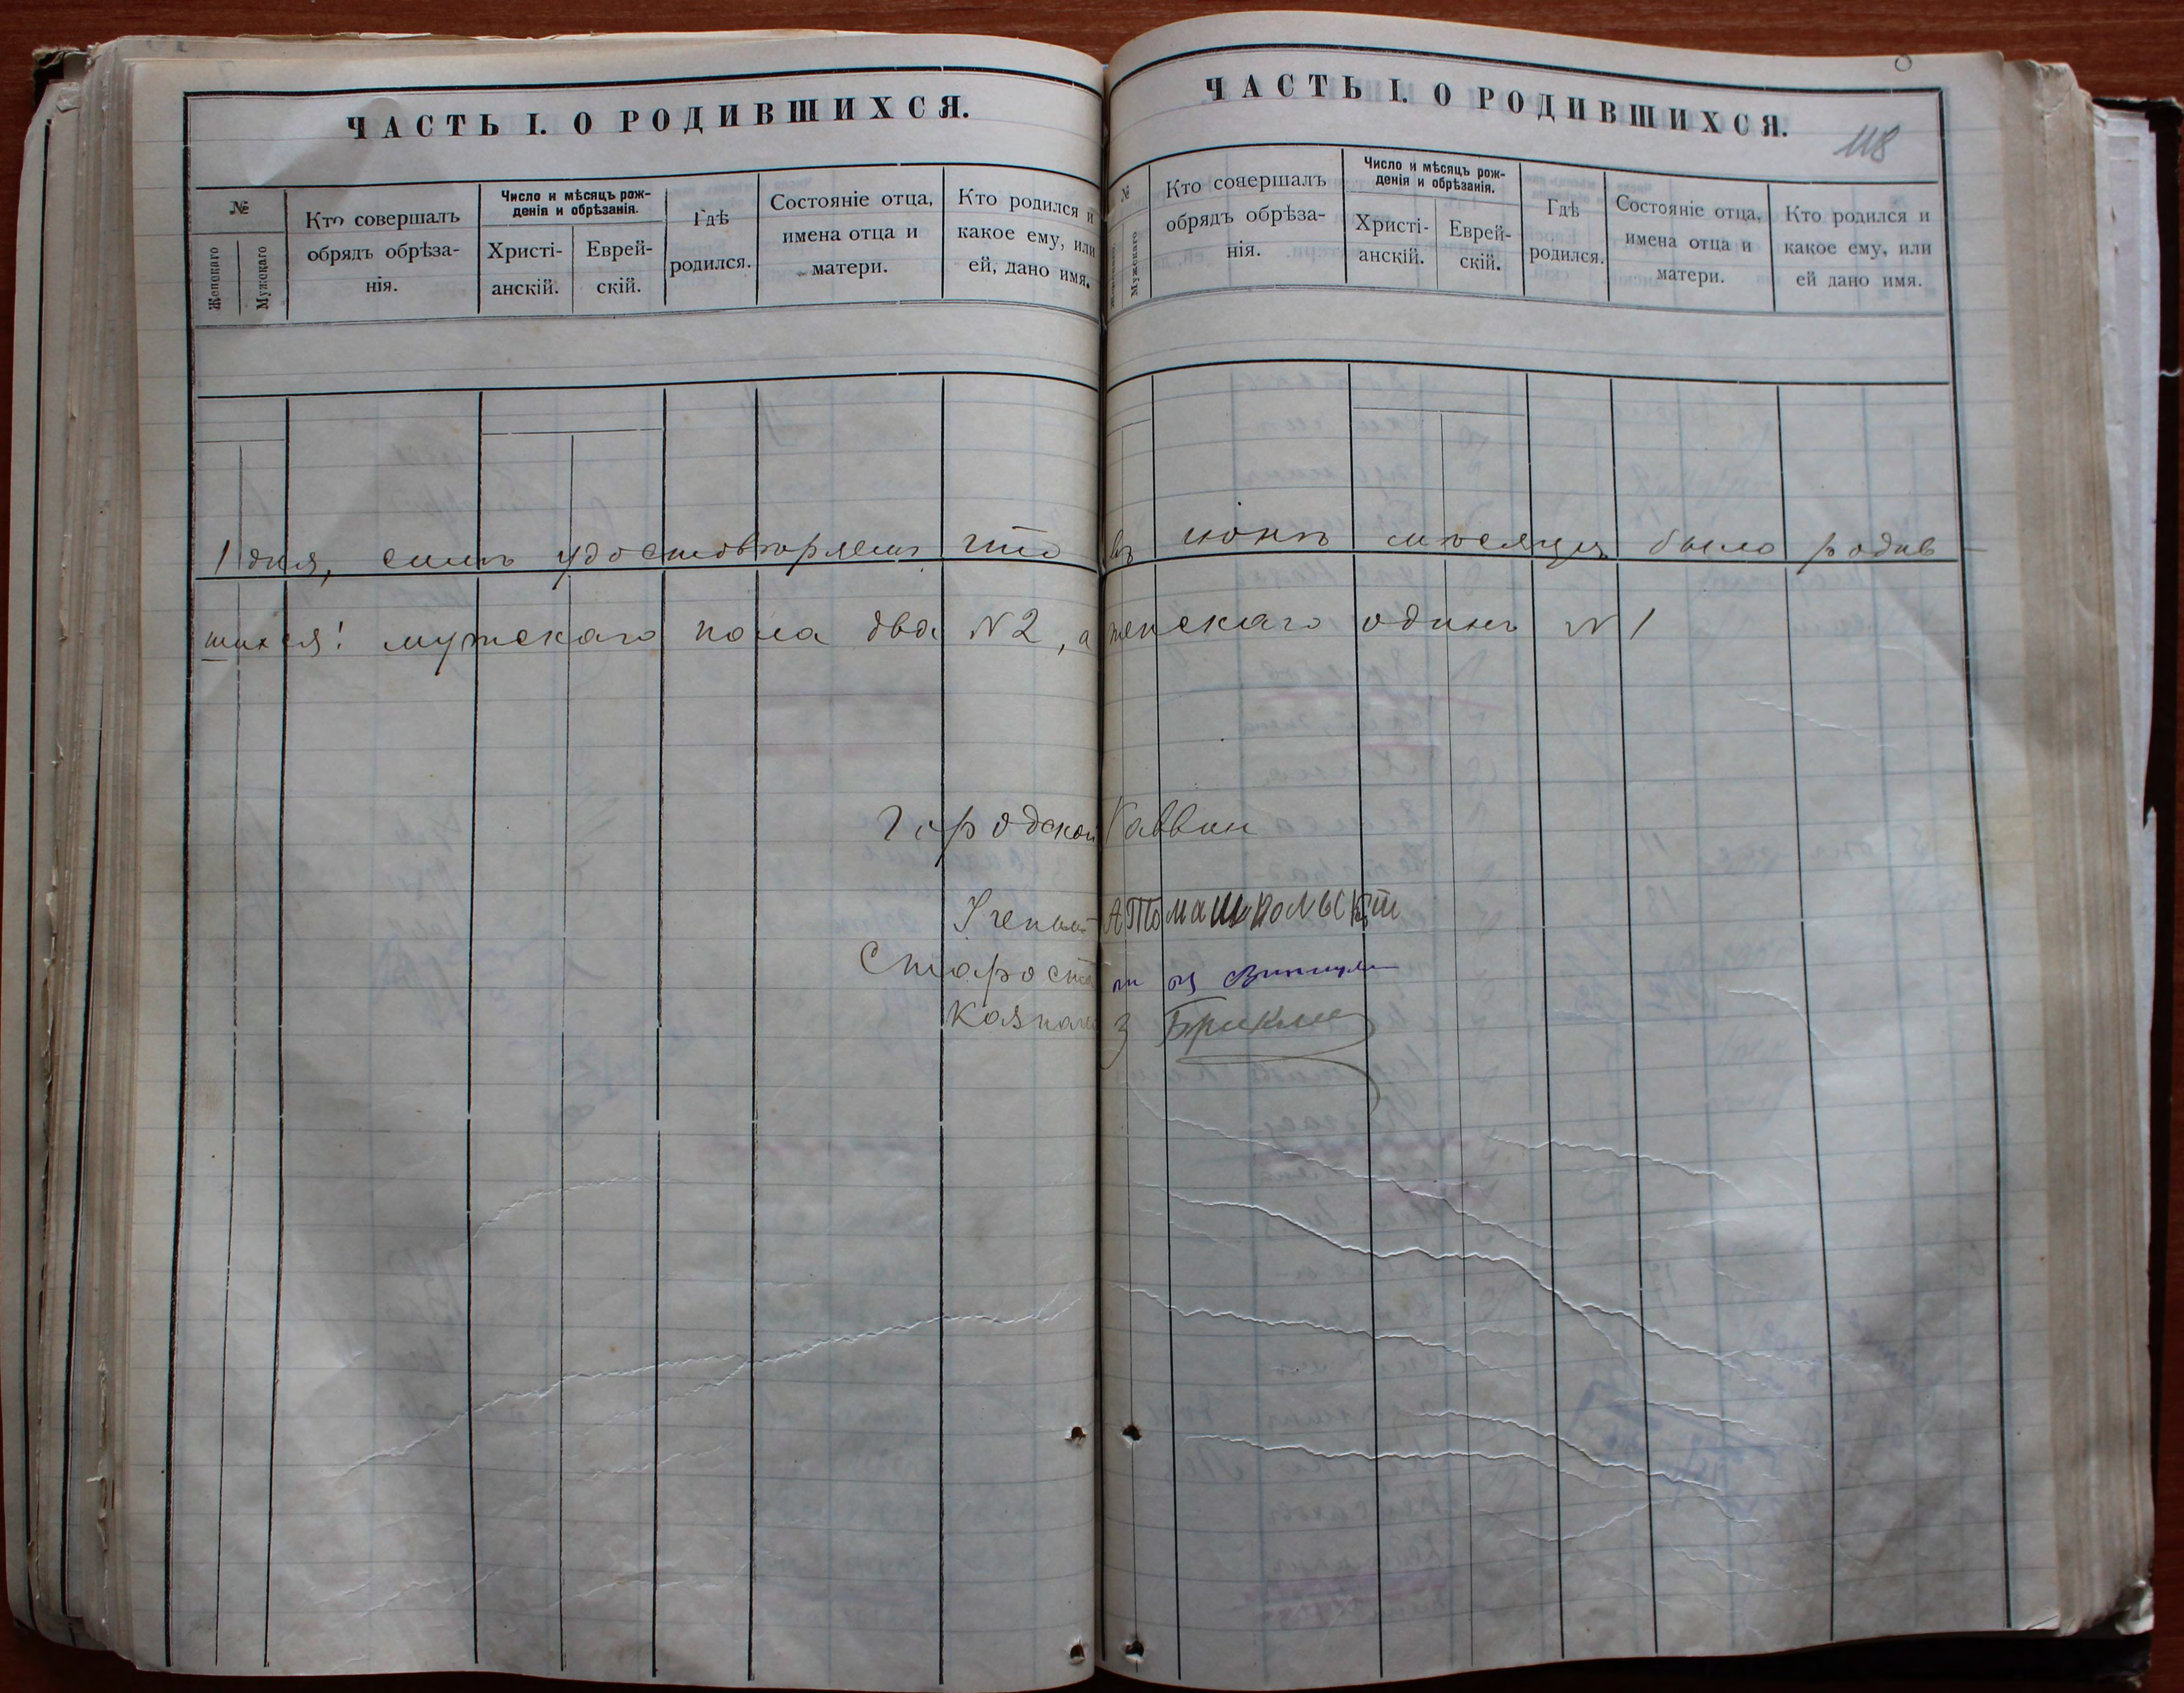 ЧАСТЬ I. О РОДИВШИХСЯ.
№
Женскаго
Мужскаго
Кто совершалъ
обрядъ обрѣза-
нія.
Число и мѣсяцъ рож-
денія и обрѣзанія.
Христі-
анскій.
Еврей-
скій.
Гдѣ
родился.
Состояніе отца,
имена отца и
матери.
Кто родился и
какое ему, или
ей, дано имя.
ЧАСТЬ I. О РОДИВШИХСЯ.
118
№
Мужскаго
Кто совершалъ
обрядъ обрѣза-
нія.
Число и мѣсяцъ рож-
денія и обрѣзанія.
Христі-
анскій.
Еврей-
скій.
Гдѣ
родился.
Состояніе отца,
имена отца и
матери.
Кто родился и
какое ему, или
ей дано имя.
1 дня, симъ удостовѣряемъ что въ іюнѣ мѣсяцѣ было родив-
шихся: мужскаго пола два №2, а женскаго одинъ №1
Городской Раввин
Ученый А Томашпольскій
Староста
Казначей З